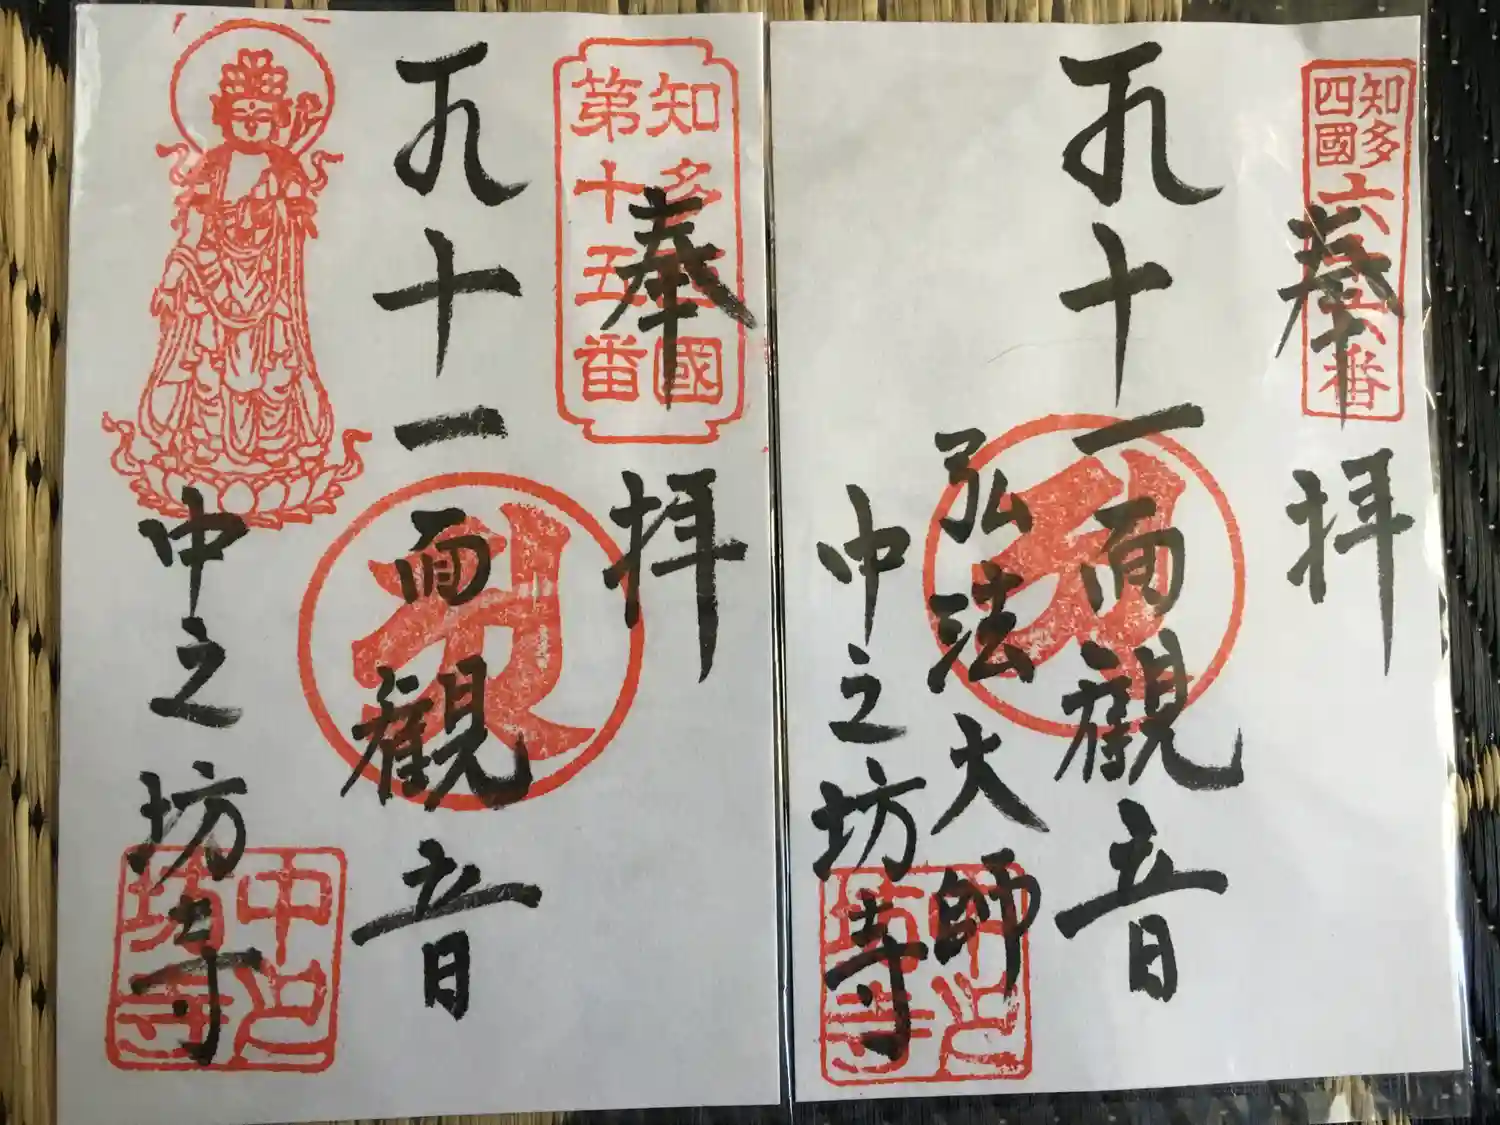 知多西國
第十五番
奉拝
十一面觀音
中之坊寺
中之
坊寺
知多
四國
六十六番
奉拝
十一面觀音
弘法大師
中之坊寺
中之
坊寺